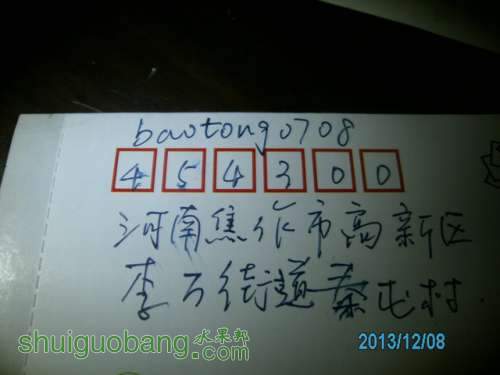 baotong0708
454300
河南焦作市高新区
李万街道秦屯村.
水果邦
shuiguobang.com
2013/12/08